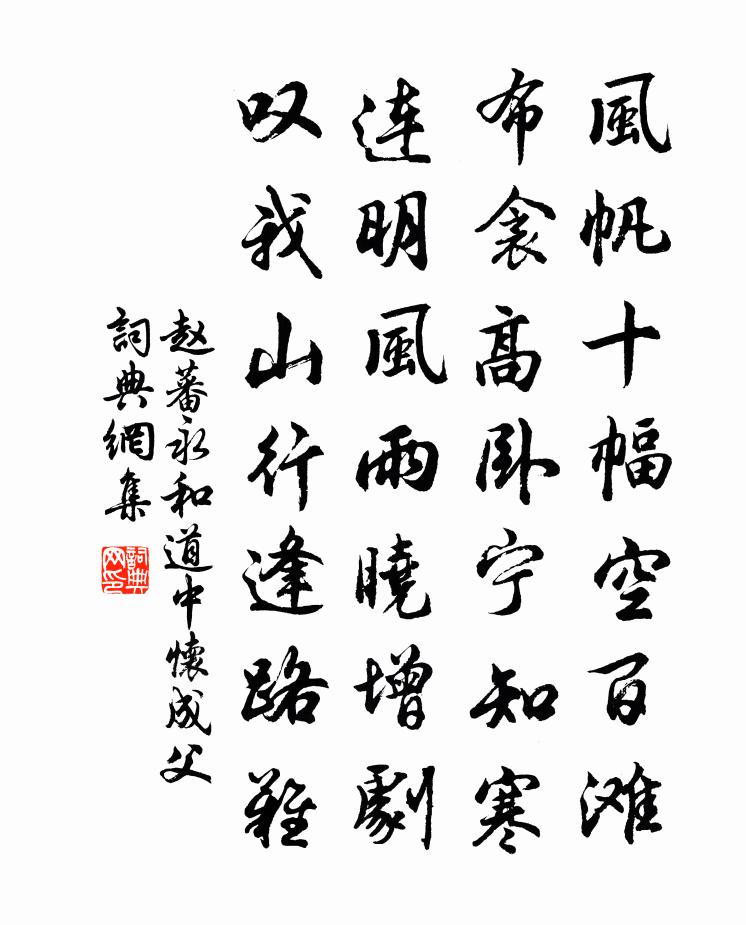 風帆十幅空百滩
布衾高卧宁知寒
連明風雨曉增劇
叹我山行逢路難
赵蕃永和道中懷成父
詞典網集
詞典网印